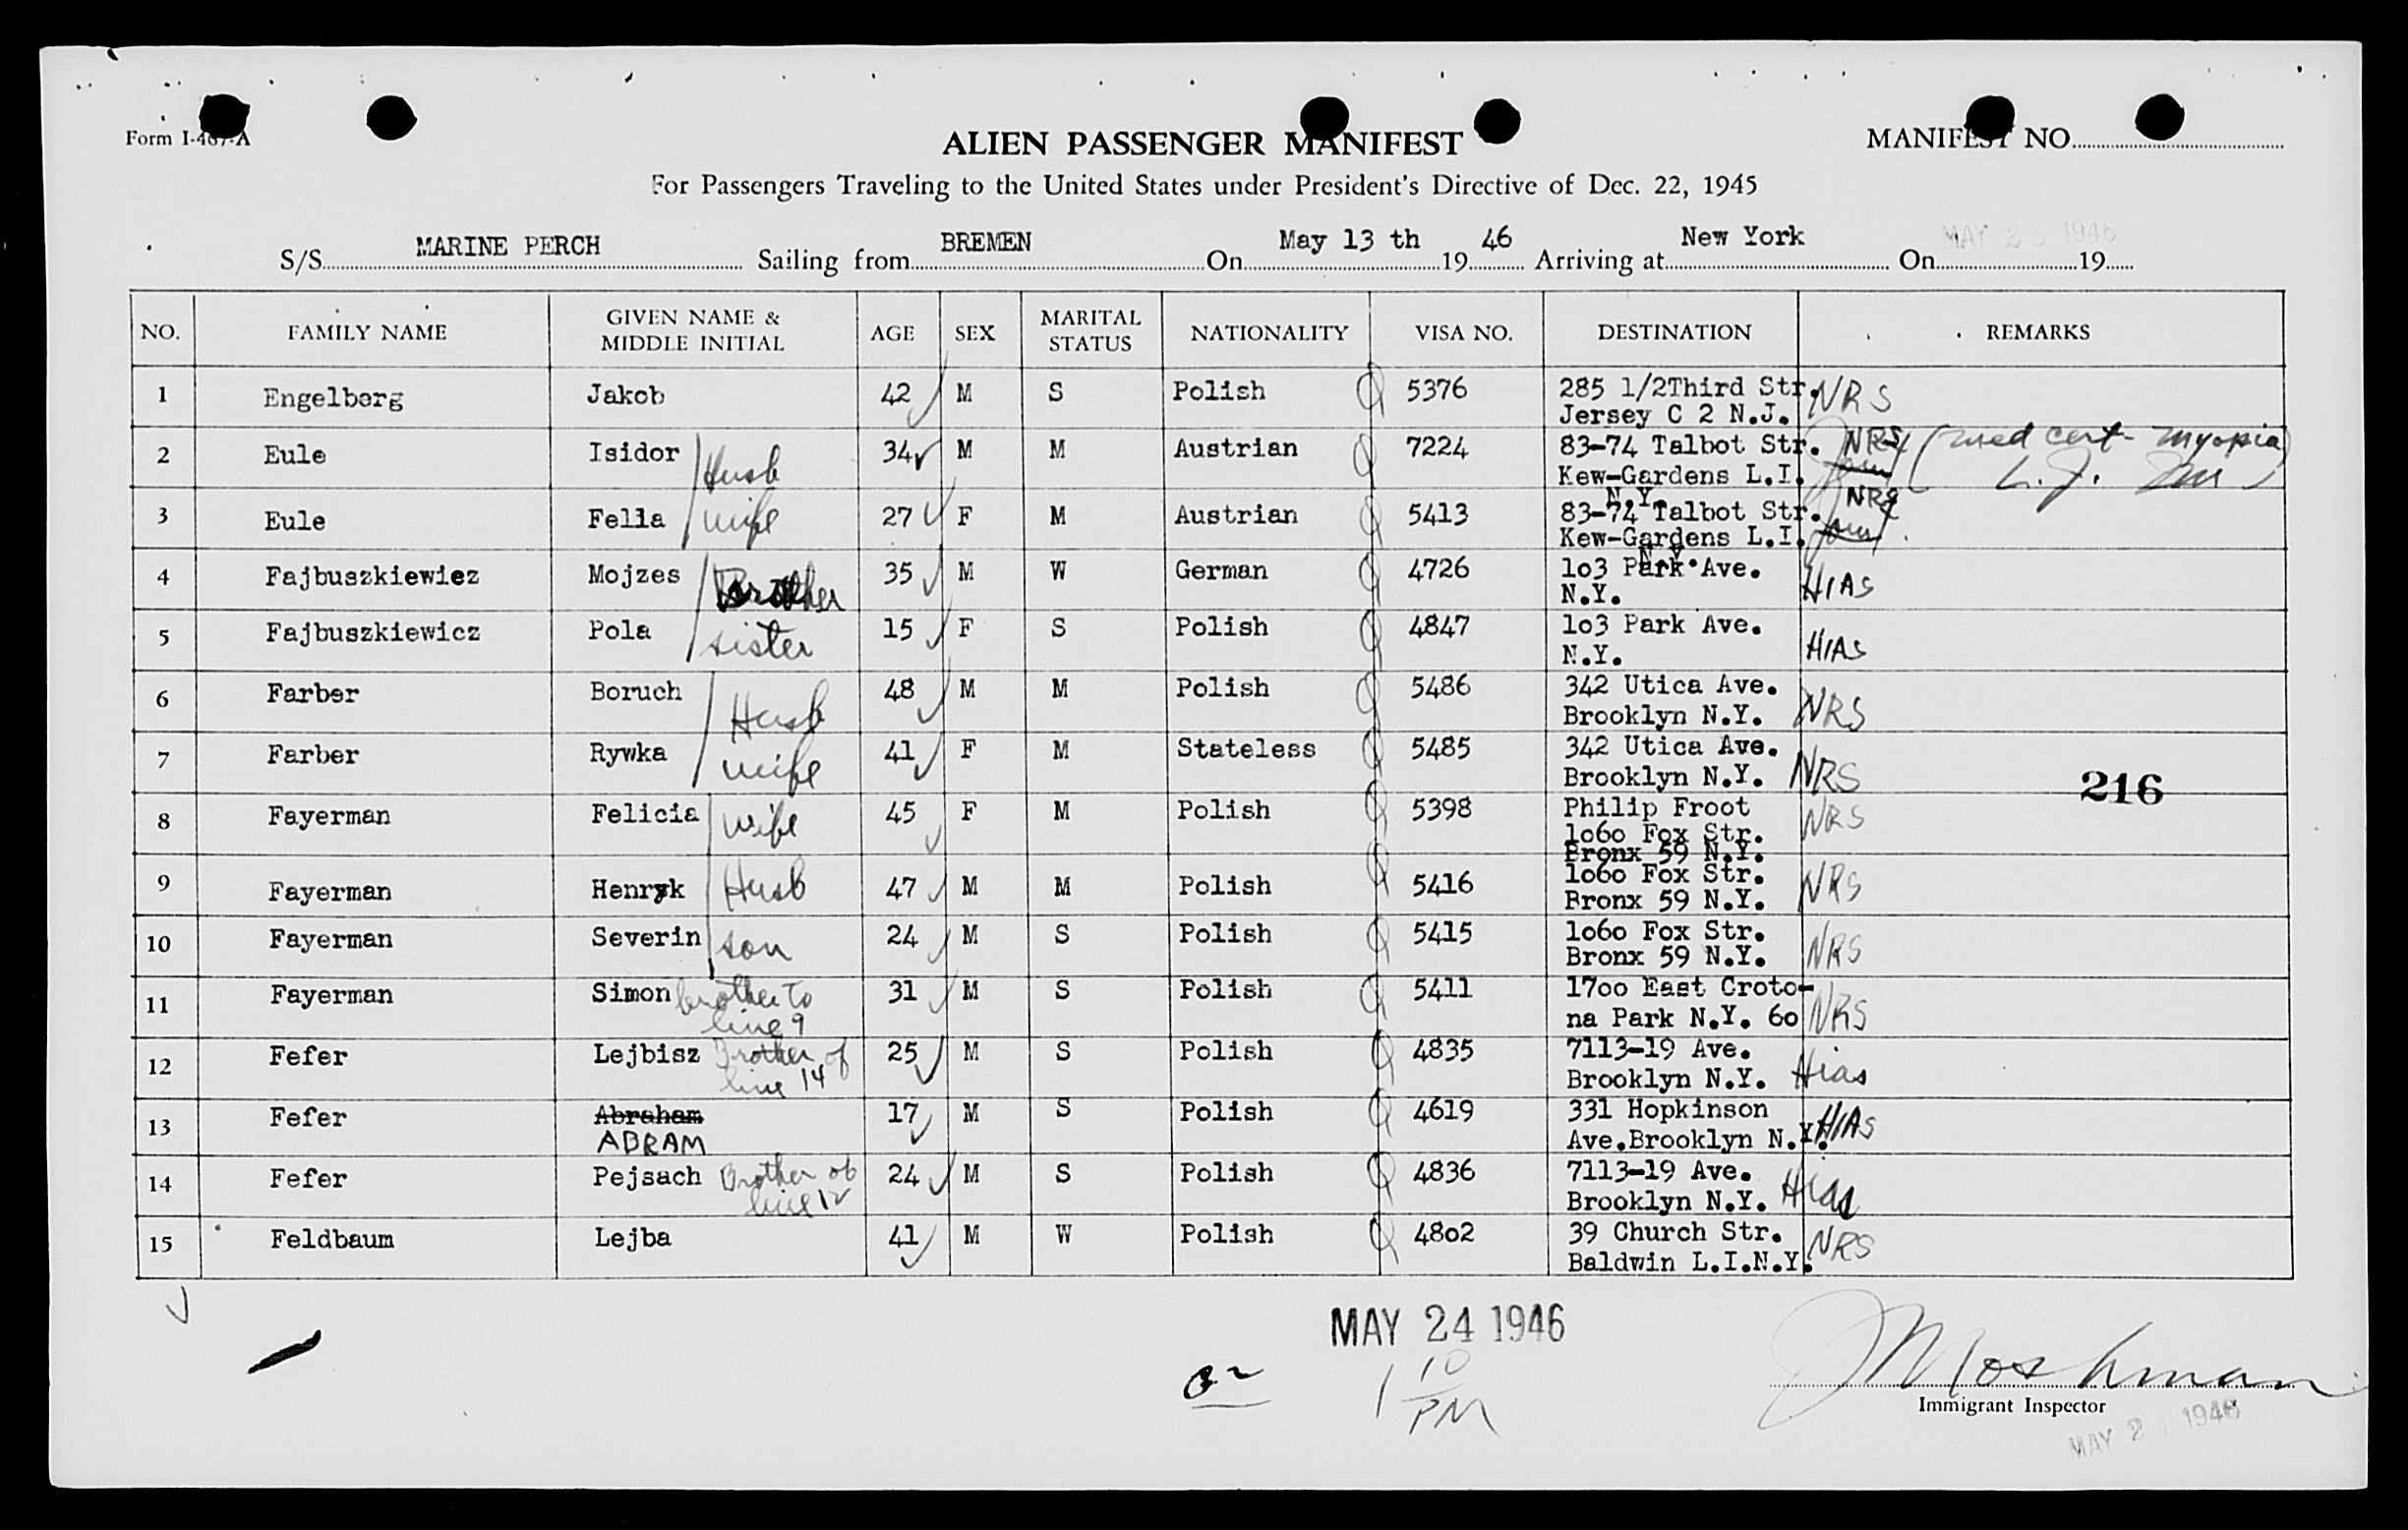 Form I-467-A
ALIEN PASSENGER MANIFEST
MANIFEST NO.
For Passengers Traveling to the United States under President's Directive of Dec. 22, 1945
S/S MARINE PERCH Sailing from BREMEN On May 13 th 19 46 Arriving at New York On MAY 1946 19
NO. FAMILY NAME GIVEN NAME & MIDDLE INITIAL AGE SEX MARITAL STATUS NATIONALITY VISA NO. DESTINATION REMARKS
1 Engelberg Jakob 42 M S Polish 5376 285 1/2Third Str. NRS
Jersey C 2 N.J.
2 Eule Isidor Husb 34 M M Austrian 7224 83-74 Talbot Str. NRS (med cert- myopia)
Kew-Gardens L.I.
N.Y.
3 Eule Fella wife 27 F M Austrian 5413 83-74 Talbot Str. NRS
Kew-Gardens L.I.
N.Y.
4 Fajbuszkiewiez Mojzes Brother 35 M W German 4726 1o3 Park Ave. HIAS
N.Y.
5 Fajbuszkiewicz Pola sister 15 F S Polish 4847 1o3 Park Ave. HIAS
N.Y.
6 Farber Boruch Husb 48 M M Polish 5486 342 Utica Ave. NRS
Brooklyn N.Y.
7 Farber Rywka wife 41 F M Stateless 5485 342 Utica Ave. NRS
Brooklyn N.Y.
216
8 Fayerman Felicia wife 45 F M Polish 5398 Philip Froot NRS
1o6o Fox Str.
Bronx 59 N.Y.
9 Fayerman Henryk Husb 47 M M Polish 5416 1o6o Fox Str. NRS
Bronx 59 N.Y.
10 Fayerman Severin son 24 M S Polish 5415 1o6o Fox Str. NRS
Bronx 59 N.Y.
11 Fayerman Simon brother to line 9 31 M S Polish 5411 17oo East Croto- NRS
na Park N.Y. 6o
12 Fefer Lejbisz Brother of line 14 25 M S Polish 4835 7113-19 Ave. Hias
Brooklyn N.Y.
13 Fefer Abraham 17 M S Polish 4619 331 Hopkinson HIAS
ABRAM Ave.Brooklyn N.Y.
14 Fefer Pejsach Brother of line 12 24 M S Polish 4836 7113-19 Ave. Hias
Brooklyn N.Y.
15 Feldbaum Lejba 41 M W Polish 48o2 39 Church Str. NRS
Baldwin L.I.N.Y.
MAY 24 1946
1 10 PM
J Moshman
Immigrant Inspector
MAY 2 1946